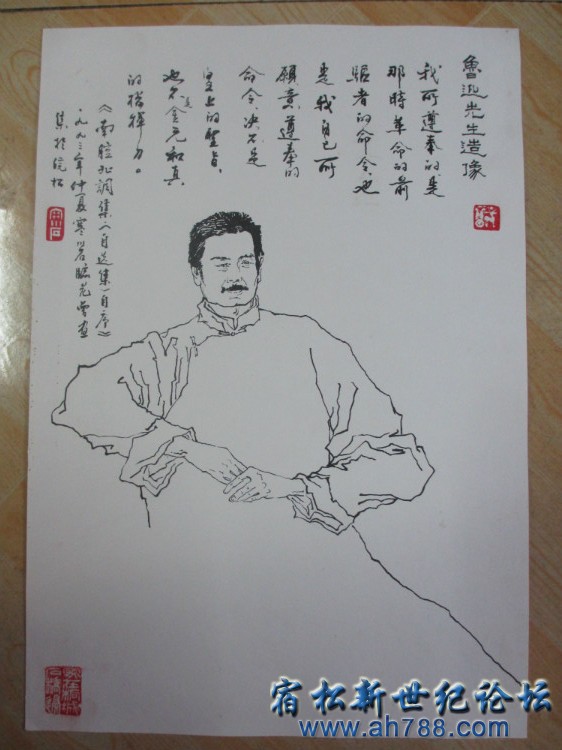 魯迅先生造像
我所遵奉的是
那時革命的前
驅者的命令也
是我自己所
願意遵奉的
命令決不是
皇上的聖旨
也不是金元和真
的指揮刀。
《南腔北調集《自选集》自序》
一九九三年仲夏寒
宿松新世纪论坛
www.ah788.com